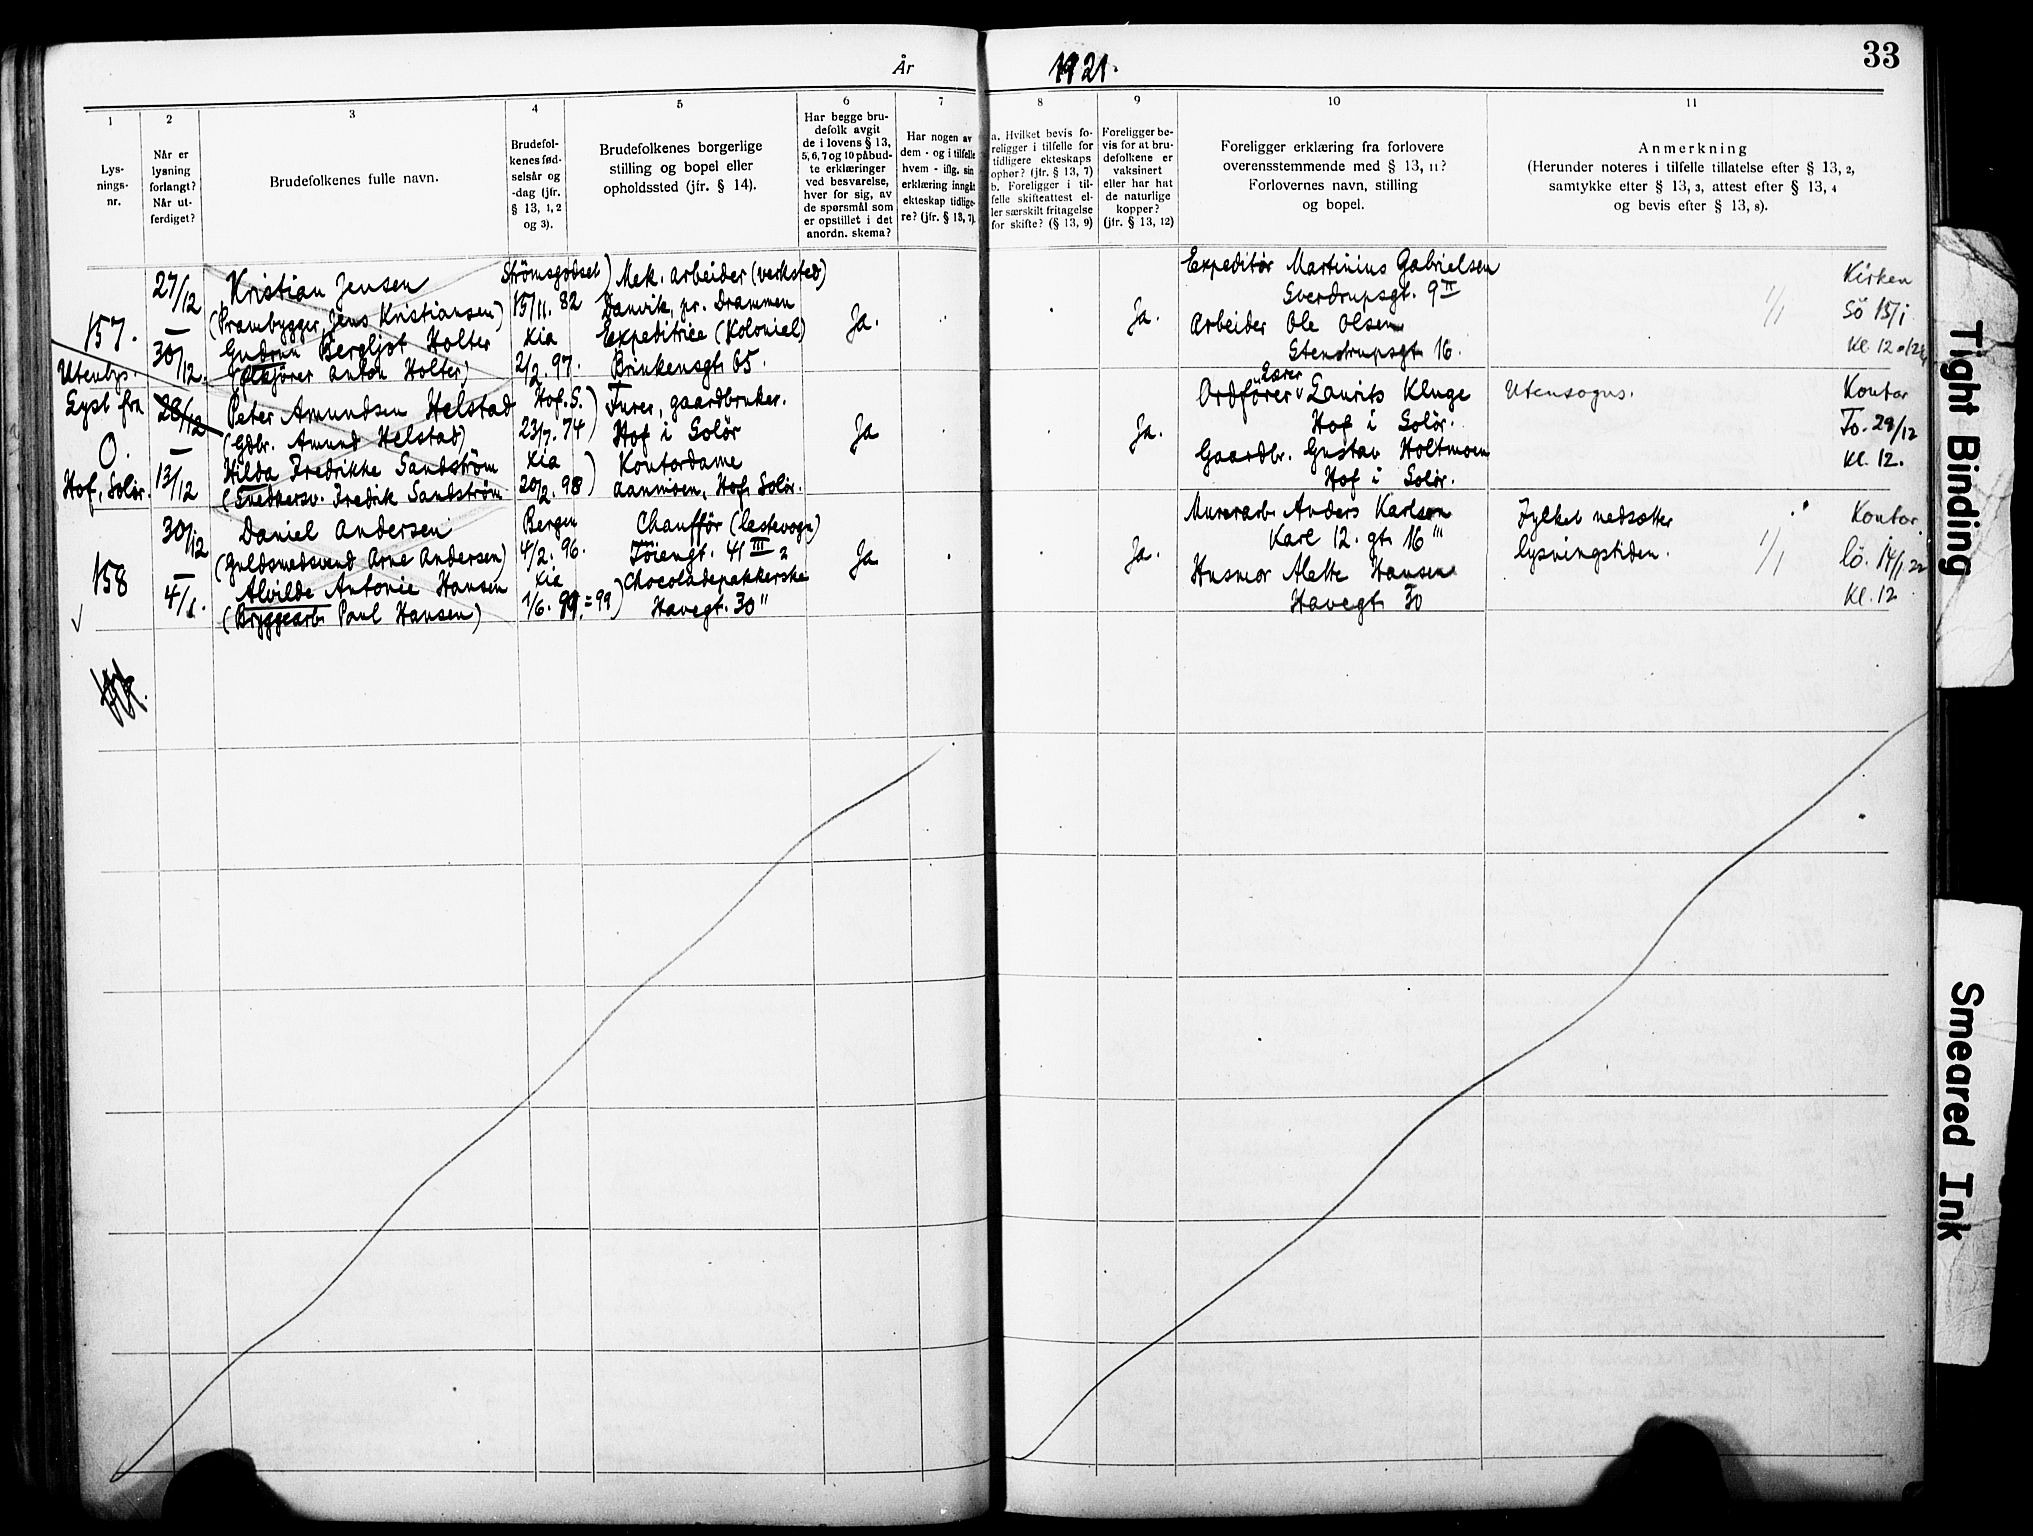 År 1921.
33
1
Lys-
nings-
nr.
2
Når er
lysning
forlangt?
Når ut-
ferdiget?
3
Brudefolkenes fulle navn.
4
Brudefol-
kenes fød-
selsår og
-dag (jfr.
§ 13, 1, 2
og 3).
5
Brudefolkenes borgerlige
stilling og bopel eller
opholdssted (jfr. § 14).
6
Har begge bru-
defolk avgit
de i lovens § 13,
5, 6, 7 og 10 påbud-
te erklæringer
ved besvarelse,
hver for sig, av
de spørsmål som
er opstillet i det
anordn. skema?
7
Har nogen av
dem - og i tilfelle
hvem - iflg. sin
erklæring inngåt
ekteskap tidlige-
re? (jfr. § 13, 7).
8
a. Hvilket bevis fo-
religger i tilfelle for
tidligere ekteskaps
ophør? (jfr. § 13, 7)
b. Foreligger i til-
felle skifteattest el-
ler særskilt fritagelse
for skifte? (§ 13, 9)
9
Foreligger be-
vis for at bru-
defolkene er
vaksinert
eller har hat
de naturlige
kopper?
(jfr. § 13, 12)
10
Foreligger erklæring fra forlovere
overensstemmende med § 13, 11?
Forlovernes navn, stilling
og bopel.
11
Anmerkning
(Herunder noteres i tilfelle tillatelse efter § 13, 2,
samtykke efter § 13, 3, attest efter § 13, 4
og bevis efter § 13, 8).
157.
Utenbys.
27/12
—
30/12.
Kristian Jensen
(Prambygger Jens Kristiansen)
Gudrun Bergljot Holter
(Ølkjører Anton Holter)
Strömsgodset)
15/11. 82
Kia
2/2. 97.
Mek. arbeider (verksted)
Danvik, pr. Drammen
Expeditrice (Kolonial)
Brinkensgt. 65.
Ja.
Ja.
Expeditör Martinius Gabrielsen
Sverdrupsgt. 9 II
Arbeider Ole Olsen
Stenstrupsgt. 16.
1/1
Kirken
Sö 15/1
Kl. 12
Lyst fra
O.
Hof, Solör.
28/12
—
13/12
Peter Amundsen Helstad
(Gdbr. Amund Helstad)
Hilda Fredrikke Sandström
(Snedkersv. Fredrik Sandström
Hof. S.
23/7. 74)
Kia
20/2. 98)
Furer, gaardbruker.
Hof i Solör
Kontordame
Aanmoen, Hof, Solör.
Ja
Ja.
Lærer
Ordfører Laurits Kluge
Hof i Solör.
Gaardbr. Gustav Holtmoen
Hof i Solör.
Utensogns.
Kontor
To. 29/12
Kl. 12.
158
30/12
—
4/1.
Daniel Andersen
(Guldsmedsvend Arne Andersen)
Alvilde Antonie Hansen
(Bryggearb. Paul Hansen)
Bergen
4/2. 96.
Kia
1/6. 99. = 99)
Chaufför (lastevogn)
Töiengt. 41 III 2
Chocoladepakkerske
Havegt. 30"
Ja
Ja.
Murerarb. Anders Karlsen
Karl 12. gt. 16 "'
Husmor Alette Hansen
Havegt. 30
Fylket nedsætter
lysningstiden.
1/1
Kontor.
Lö. 14/1 22
Kl. 12
Tight Binding
Smeared Ink